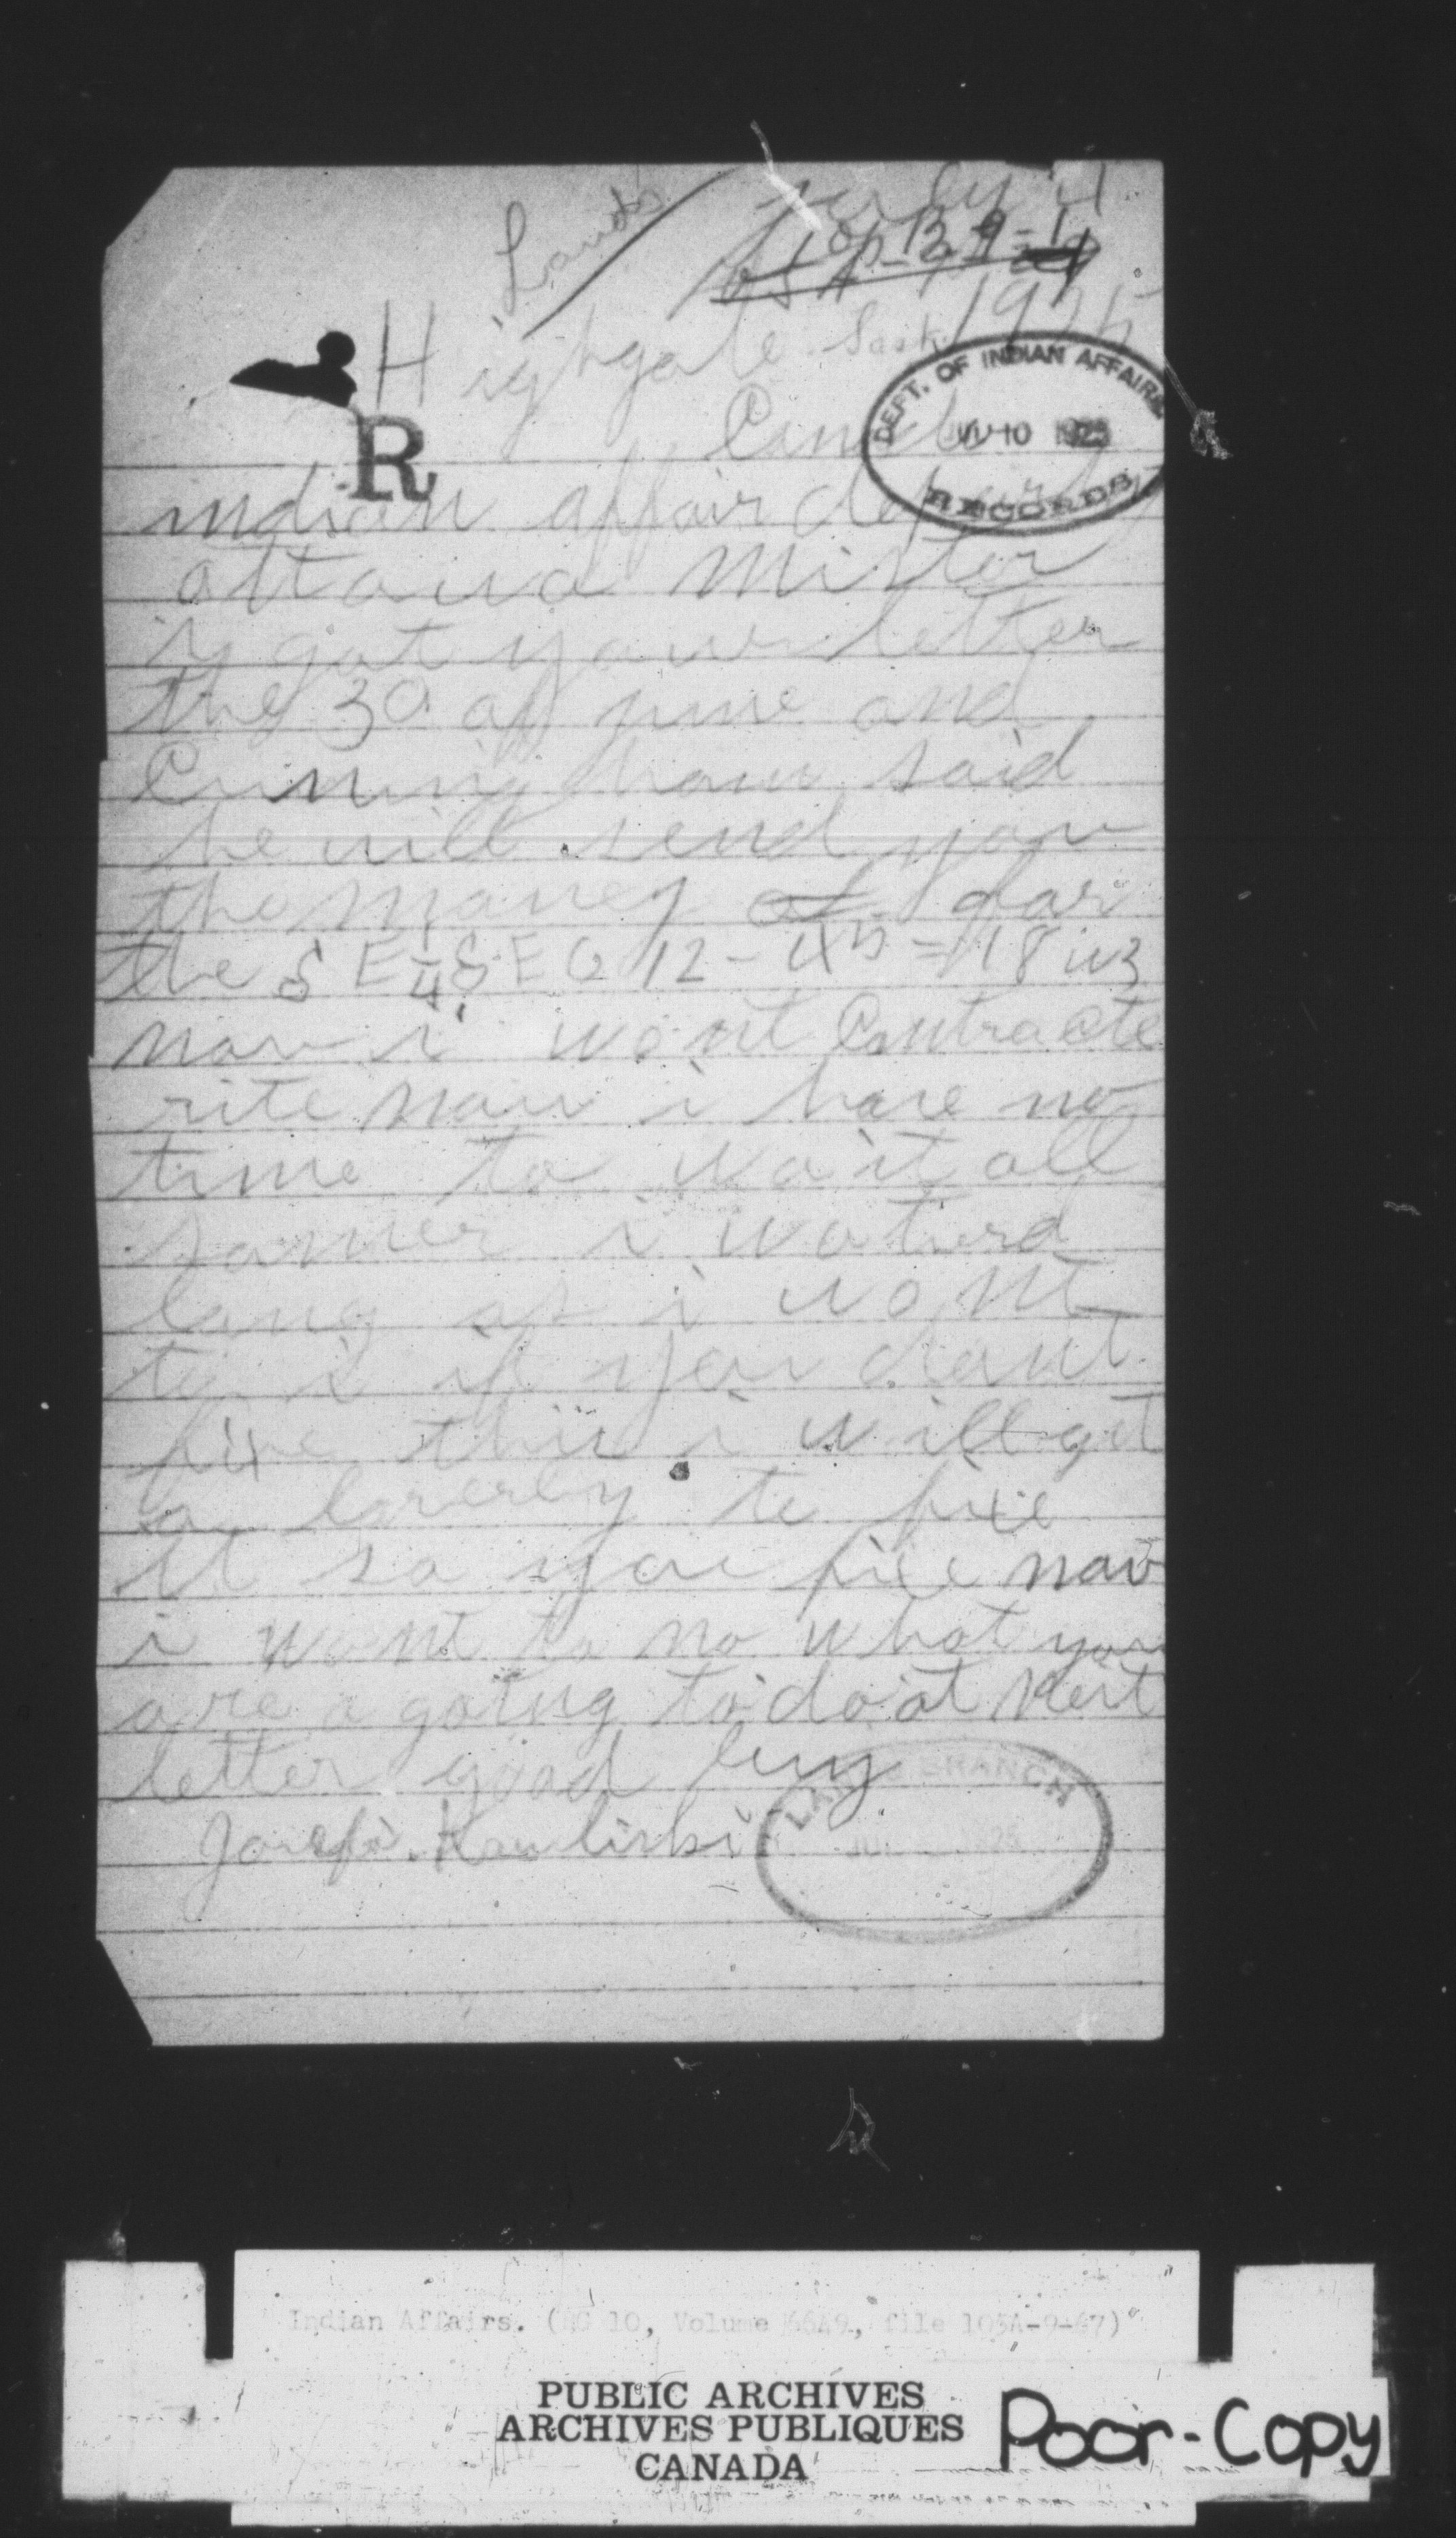 Lands
july 4
1925
Highgate Sask
R
DEPT. OF INDIAN AFFAIRS
JUL 10 1925
RECORDS
indian affair
ottawa Mister
i got your letter
the 30 of june and
Cuningham said
he will send you
the money for
the S E 1/4 SEC 12 - 45 = 18 w3
now i wont Contracte
rite now i have no
time to wait all
somer i
long as i wont
to i if you dont
fixe this i will get
a to fixe
it so you fixe now
i wont to no what you
are a going to do at next
letter good buy
Josef
LANDS BRANCH
Indian Affairs. (RG 10, Volume 6649, file 103A-9-67)
PUBLIC ARCHIVES
ARCHIVES PUBLIQUES
CANADA
Poor-Copy